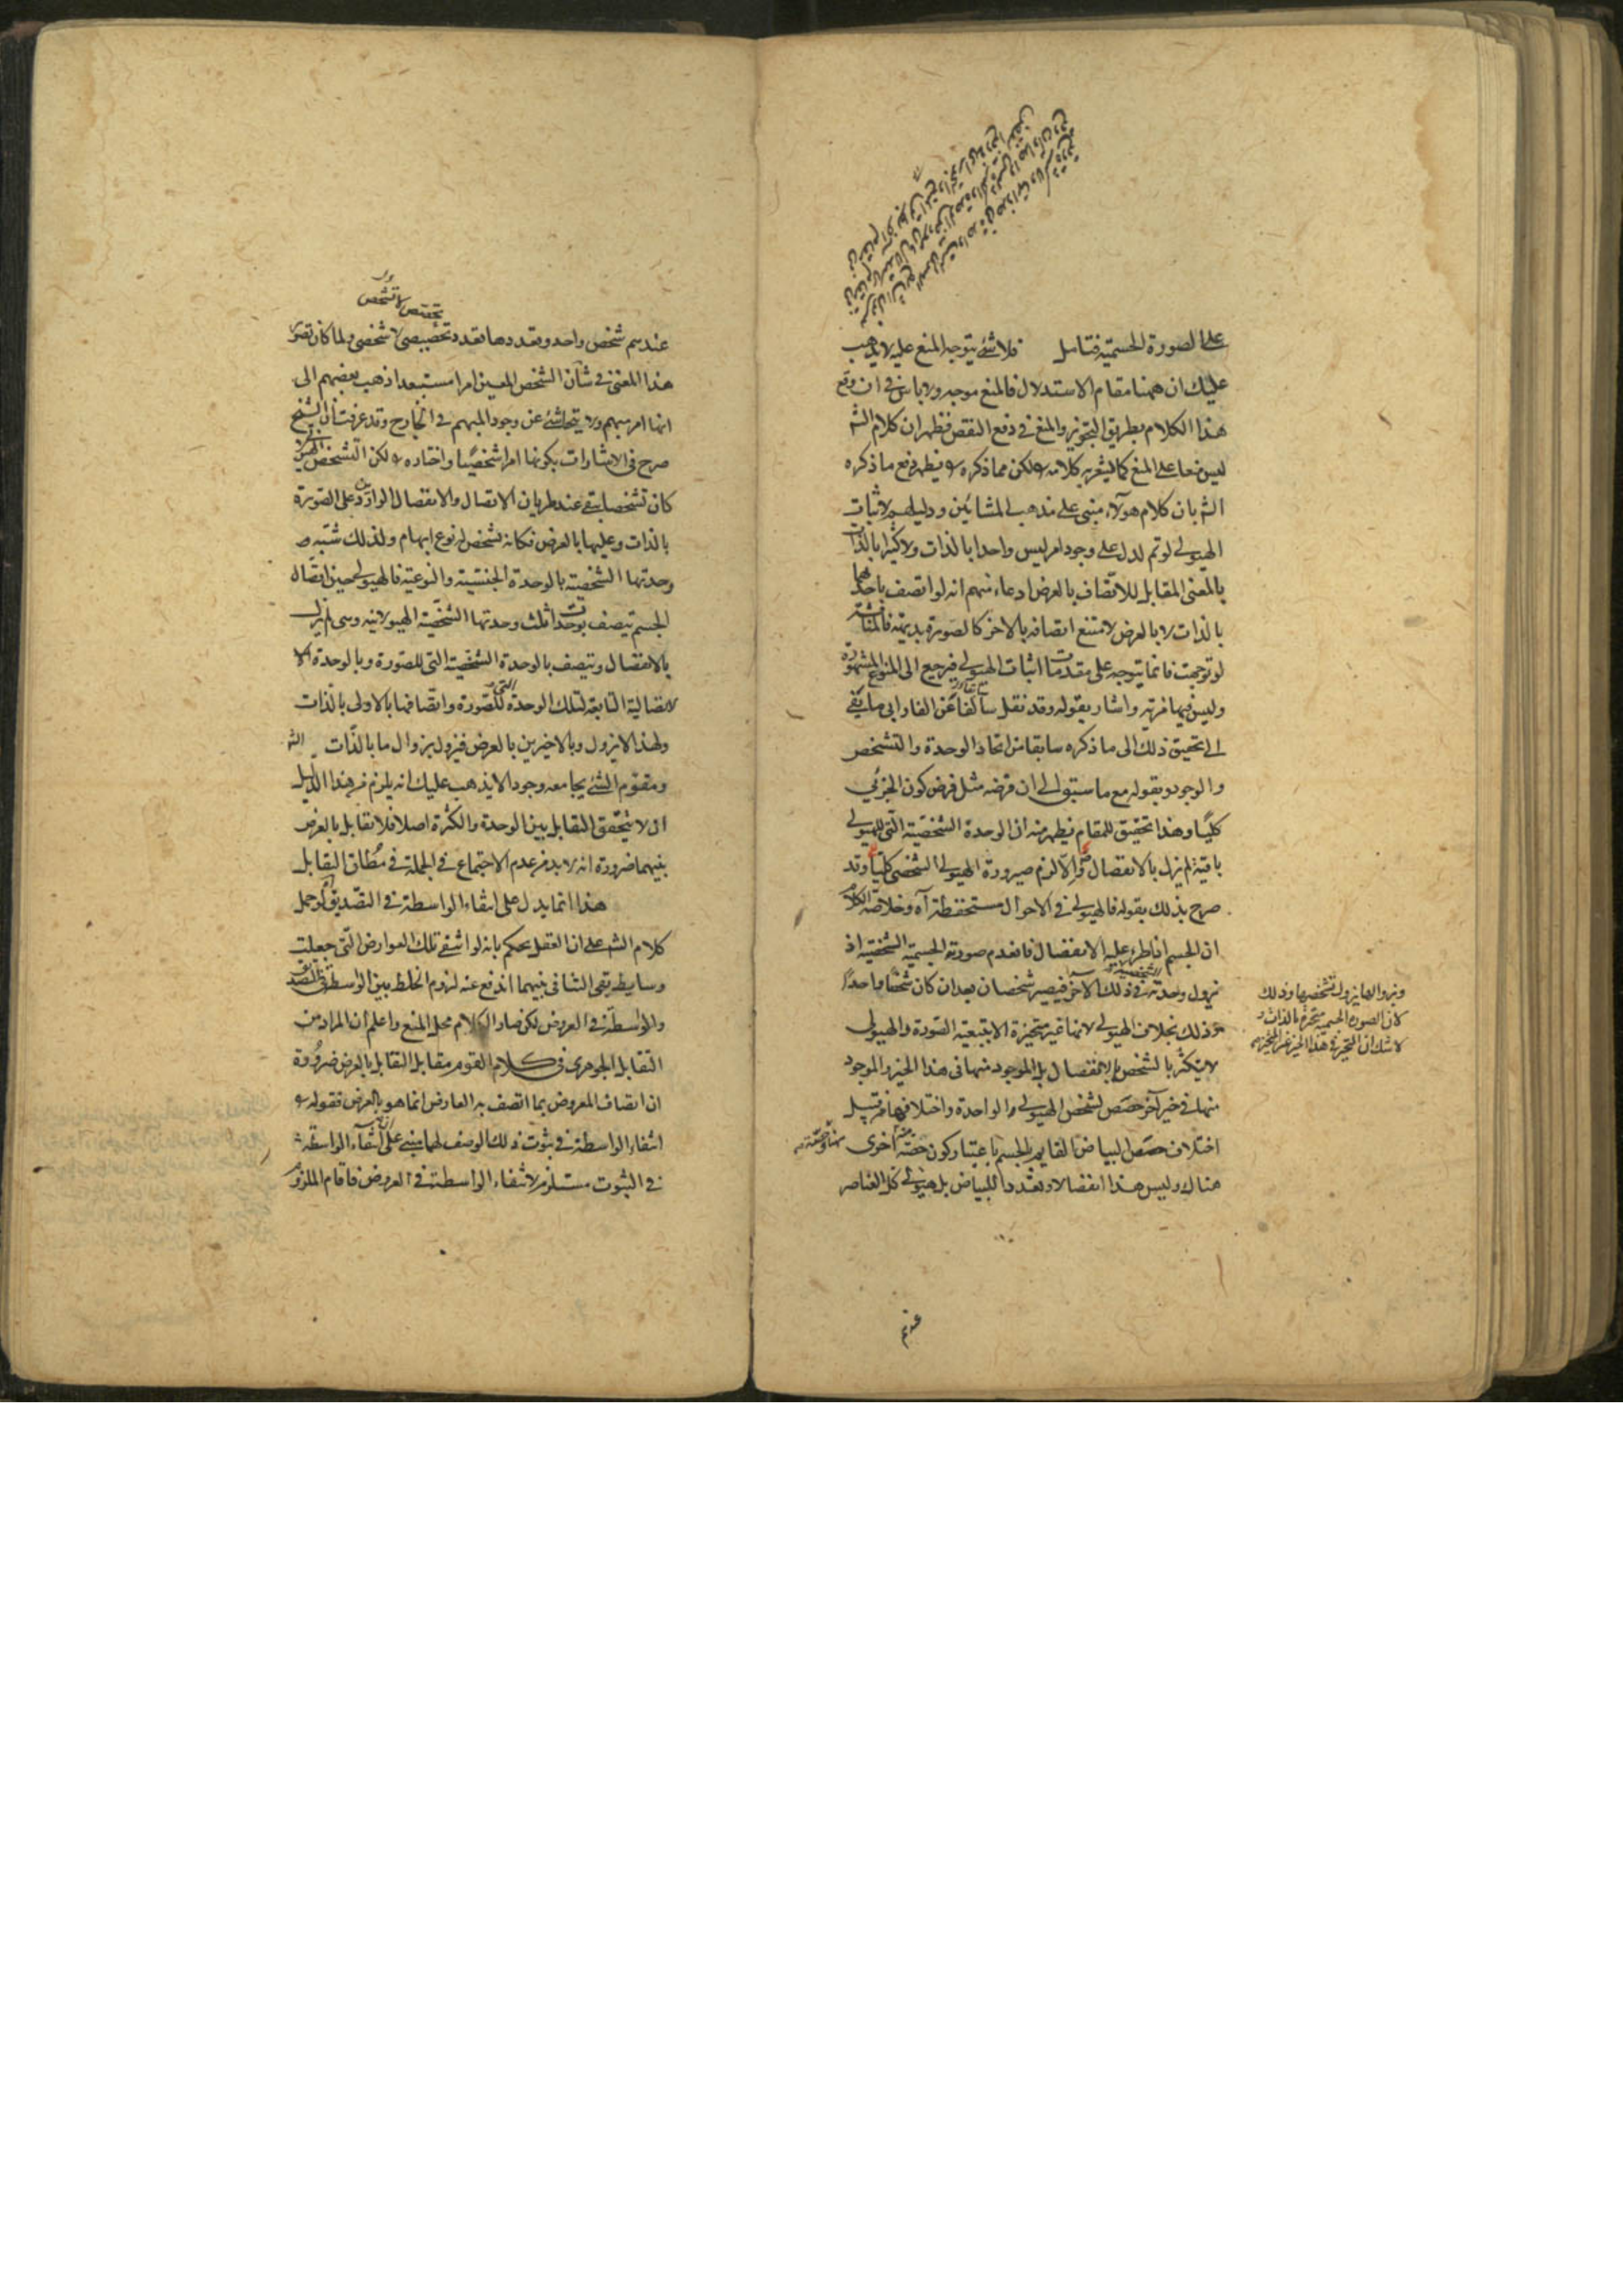 على الصورة الجسمية فتامل فلا شئ يتوجه المنع عليه لا يذهب
عليك ان ههنا مقام الاستدلال فالمنع موجه ولا باس في ان وقع
هذا الكلام بطريق التجويز والمنع في دفع النقض فظهر ان كلام الش
ليس منعا على المنع كما يشعر به كلامه ولكن مما ذكره يظهر دفع ما ذكره
الش بان كلام هولاء مبنى على مذهب المشائين ودليلهم لاثبات
الهيولى لو تم لدل على وجود امر ليس واحدا بالذات ولا كثيرا بالذات
بالمعنى المقابل للاتصاف بالعرض ادعاء منهم انه لو اتصف باحدهما
بالذات لا بالعرض لامتنع اتصافه بالاخر كالصورة بديهة فالمناقشة
لو توجهت فانما يتوجه على مقدمات اثبات الهيولى فيرجع الى المنوع المشهورة
وليس فيها فرية واشار بقوله وقد نقل سالفا عن الفارابى ما يفى
الى تحقيق ذلك الى ما ذكره سابقا من اتحاد الوحدة والتشخص
والوجود وبقوله مع ما سبق الى ان فرضه مثل فرض كون الجزئى
كليا وهذا تحقيق للمقام يظهر منه ان الوحدة الشخصية التى للهيولى
باقية لم يزل بالانفصال والا لزم صيرورة الهيولى الشخصى كليا وقد
صرح بذلك بقوله فالهيولى فى الاحوال مستحفظة آه وخلاصة الكلام
ان الجسم اذا طرء عليه الانفصال فانعدم صورته الجسمية الشخصية اذ
نزول وحدته فى ذلك الآخر فيصير شخصان بعد ان كان شخصا واحدا
وذلك بخلاف الهيولى لانها غير متحيزة الا بتبعية الصورة والهيولى
لا يتكثر بالشخص بالانفصال بل الموجود منها فى هذا الحيز والموجود
منها فى حيز آخر حصص لشخص الهيولى الواحدة واختلافها من قبيل
اختلاف حصص البياض القايم بالجسم باعتبار كون حصة منه اخرى
هناك وليس هذا انفصالا وتعددا للبياض بل هيولى كل العناصر
وبزوالها يزول تشخصها وذلك
لان الصورة الجسمية متحيزة بالذات و
لا شك ان المتحيز فى هذا الحيز غير المتحيز
تخصص لا تشخص
عندهم شخص واحد وتعددها تعدد تخصيصى لا شخصى ولما كان تصور
هذا المعنى فى شان الشخص المعين امرا مستبعدا ذهب بعضهم الى
انها امر مبهم ولا يتحاشى عن وجود المبهم فى الخارج وقد عرفت ان الشيخ
صرح فى الاشارات بكونها امرا شخصيا واختاره ولكن التشخص الهيولى
كان تشخصا يبقى عند طريان الاتصال والانفصال الواردين على الصورة
بالذات وعليها بالعرض فكانه تشخص له نوع ابهام ولذلك شبه
وحدتها الشخصية بالوحدة الجنسية والنوعية فالهيولى حين اتصال
الجسم تتصف بوحدات ثلث وحدتها الشخصية الهيولانية وهى لم يزل
بالانفصال وتتصف بالوحدة الشخصية التى للصورة وبالوحدة الا
تصالية التابعة لتلك الوحدة التى للصورة واتصافها بالاولى بالذات
ولهذا لا يزول وبالاخيرين بالعرض فيزول بزوال ما بالذات الش
ومقوم الشئ يجامعه وجودا لا يذهب عليك انه يلزم من هذا الدليل
ان لا يتحقق التقابل بين الوحدة والكثرة اصلا فلا تقابل بالعرض
بينهما ضرورة انه لا بد من عدم الاجتماع فى الجملة فى مطلق التقابل
هذا انما يدل على انتفاء الواسطة فى التصديق لو حمل
كلام الش على ان العقل يحكم بانه لو انتفى تلك العوارض التى جعلت
وسايط بقى التنافى بينهما اندفع عنه لزوم الخلط بين الواسطة فى التصديق
والواسطة فى العروض لكن صار الكلام محل المنع واعلم ان المراد من
التقابل الجوهرى فى كلام القوم مقابل التقابل بالعرض ضرورة
ان اتصاف المعروض بما اتصف به العارض انما هو بالعرض فقوله
انتفاء الواسطة فى ثبوت ذلك الوصف لهما مبنى على ان انتفاء الواسطة
فى الثبوت مستلزم لانتفاء الواسطة فى العروض فاقام الملزوم